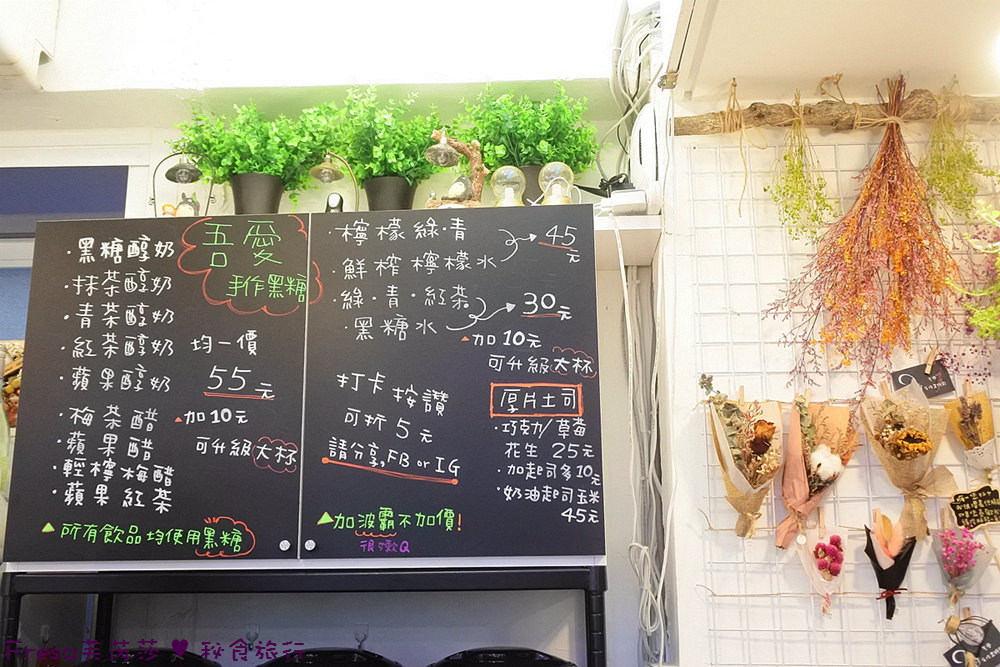 吾愛
手作黑糖
·黑糖醇奶
·抹茶醇奶
·青茶醇奶
·紅茶醇奶 均一價
·蘋果醇奶 55元
·梅茶醋 ▲加10元
·蘋果醋 可升級大杯
·輕檸梅醋
·蘋果紅茶
▲所有飲品均使用黑糖
·檸檬綠·青 45元
·鮮榨檸檬水
·綠·青·紅茶 30元
·黑糖水
▲加10元
可升級大杯
打卡按讚
可折5元
請分享,FB or IG
厚片土司
·巧克力/草莓
花生 25元
·加起司多10元
·奶油起司玉米
45元
▲加波霸不加價!
很嫩Q
秘食旅行